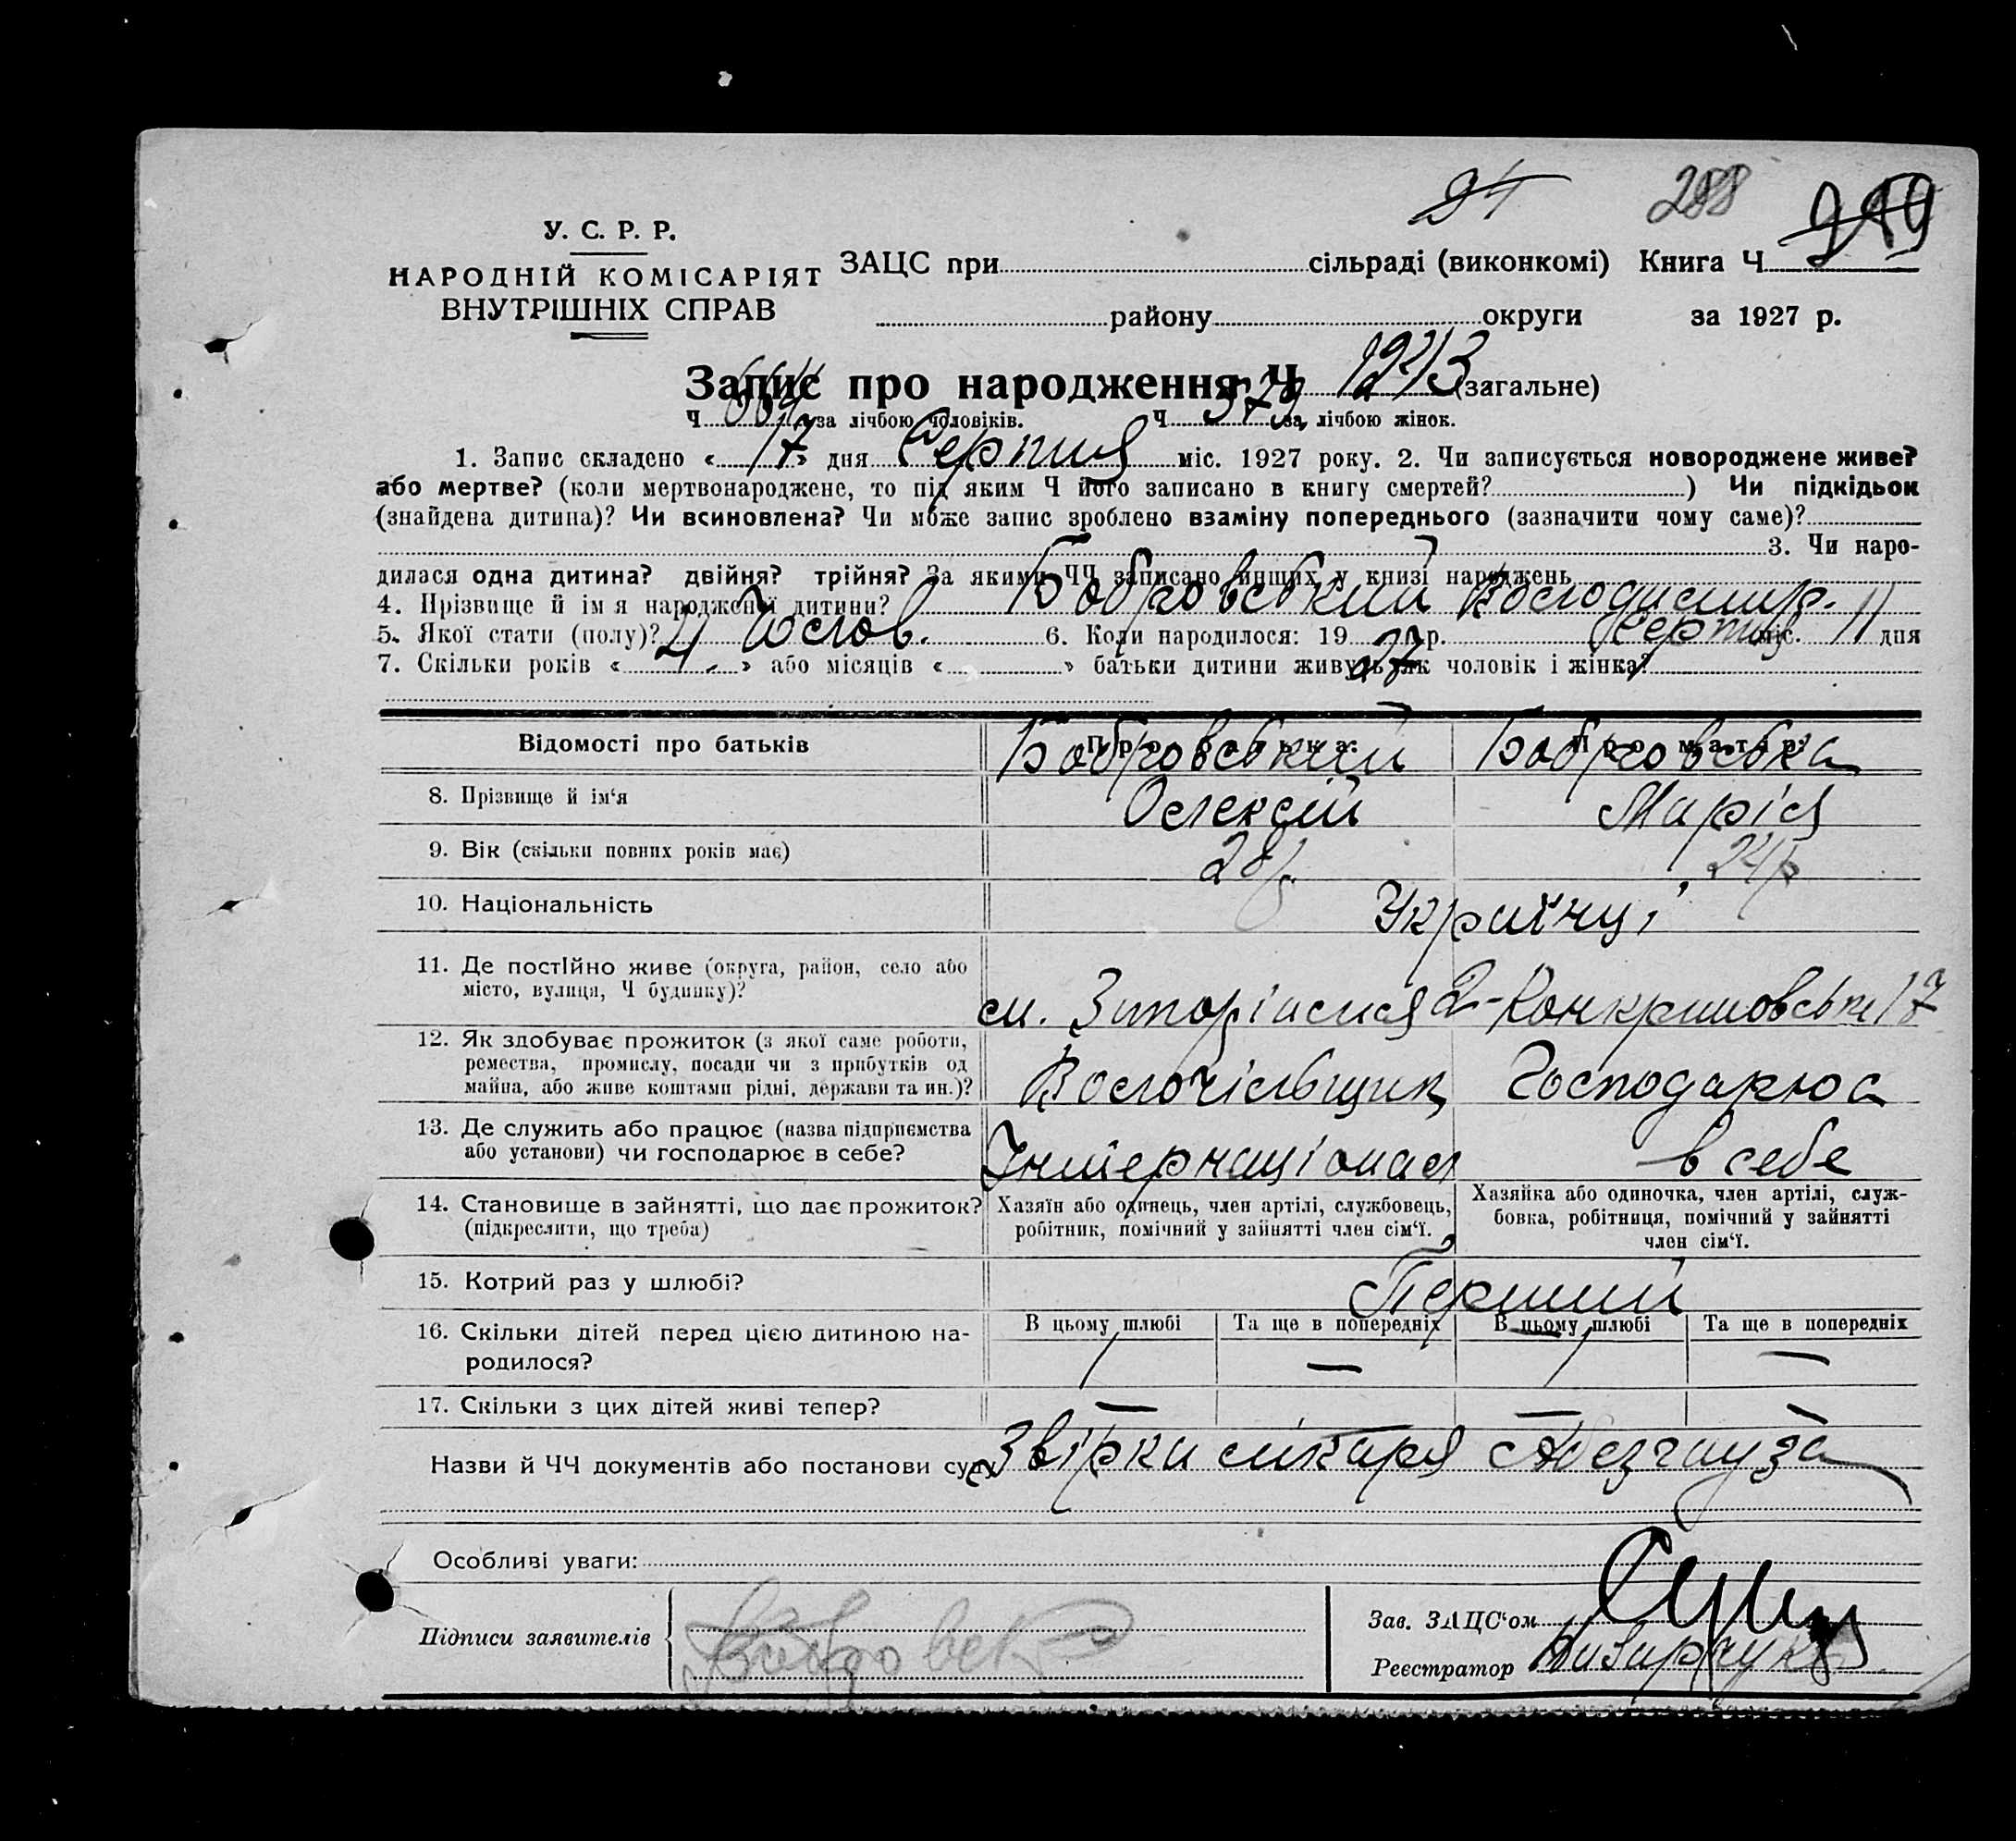 24 288 219
У. С. Р. Р.
НАРОДНІЙ КОМІСАРІЯТ
ВНУТРІШНІХ СПРАВ
ЗАЦС при сільраді (виконкомі) Книга Ч
району округи за 1927 р.
Запис про народження Ч 1243 (загальне)
Ч 664 за лічбою чоловіків. Ч 579 за лічбою жінок.
1. Запис складено « 17 » дня Серпня міс. 1927 року. 2. Чи записується новороджене живе?
або мертве? (коли мертвонароджене, то під яким Ч його записано в книгу смертей? ) Чи підкідьок
(знайдена дитина)? Чи всиновлена? Чи може запис зроблено взаміну попереднього (зазначити чому саме)?
3. Чи наро-
дилася одна дитина? двійня? трійня? За якими ЧЧ записано инших у книзі народжень
4. Прізвище й ім я народженої дитини? Бобровський Володимир.
5. Якої стати (полу)? Чолов. 6. Коли народилося: 19 27 р. Серпня міс. 11 дня
7. Скільки років « 4 » або місяців « » батьки дитини живуть як чоловік і жінка?
Відомості про батьків Про батька: Про матір:
8. Прізвище й ім‘я Бобровський Олексій Бобровська Марія
9. Вік (скільки повних років має) 28 р. 24 р
10. Національність Українці
11. Де постійно живе (округа, район, село або
місто, вулиця, Ч будинку)? м. Запоріжжя 2- 17
12. Як здобуває прожиток (з якої саме роботи,
ремества, промислу, посади чи з прибутків од
майна, або живе коштами рідні, держави та ин.)? Господарює
13. Де служить або працює (назва підприємства
або установи) чи господарює в себе? Інтернаціонал в себе
14. Становище в зайнятті, що дає прожиток?
(підкреслити, що треба)
Хазяїн або одинець, член артілі, службовець,
робітник, помічний у зайнятті член сім‘ї.
Хазяйка або одиночка, член артілі, служ-
бовка, робітниця, помічний у зайнятті
член сім‘ї.
15. Котрий раз у шлюбі? Перший
В цьому шлюбі Та ще в попередніх В цьому шлюбі Та ще в попередніх
16. Скільки дітей перед цією дитиною на-
родилося? 1 — 1 —
17. Скільки з цих дітей живі тепер? — — —
Назви й ЧЧ документів або постанови суду Звірка лікаря
Особливі уваги:
Підписи заявителів
Зав. ЗАЦС‘ом
Реєстратор